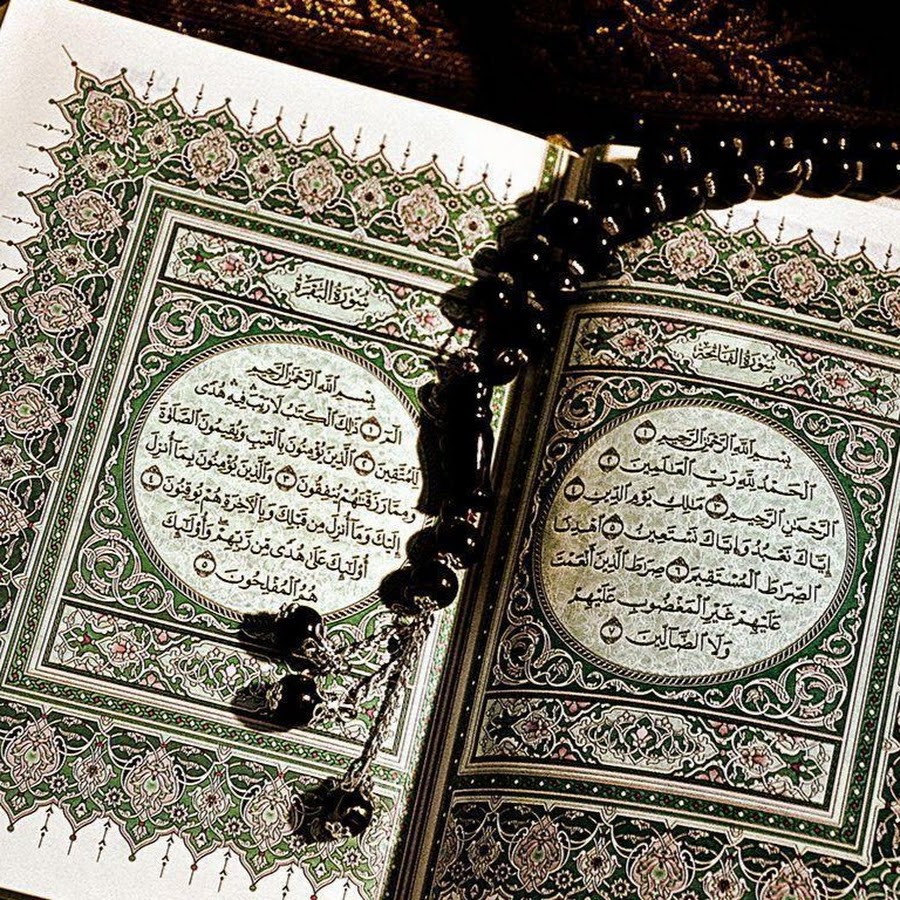 سُورَةُ الفَاتِحَةِ
بِسْمِ اللَّهِ الرَّحْمَٰنِ الرَّحِيمِ ١
الْحَمْدُ لِلَّهِ رَبِّ الْعَالَمِينَ ٢
الرَّحْمَٰنِ الرَّحِيمِ ٣ مَالِكِ يَوْمِ الدِّينِ ٤
إِيَّاكَ نَعْبُدُ وَإِيَّاكَ نَسْتَعِينُ ٥ اهْدِنَا
الصِّرَاطَ الْمُسْتَقِيمَ ٦ صِرَاطَ الَّذِينَ أَنْعَمْتَ
عَلَيْهِمْ غَيْرِ الْمَغْضُوبِ عَلَيْهِمْ
وَلَا الضَّالِّينَ ٧
سُورَةُ البَقَرَةِ
بِسْمِ اللَّهِ الرَّحْمَٰنِ الرَّحِيمِ
الٓمٓ ١ ذَٰلِكَ الْكِتَابُ لَا رَيْبَ ۛ فِيهِ ۛ هُدًى
لِّلْمُتَّقِينَ ٢ الَّذِينَ يُؤْمِنُونَ بِالْغَيْبِ وَيُقِيمُونَ الصَّلَوٰةَ
وَمِمَّا رَزَقْنَاهُمْ يُنفِقُونَ ٣ وَالَّذِينَ يُؤْمِنُونَ بِمَا أُنزِلَ
إِلَيْكَ وَمَا أُنزِلَ مِن قَبْلِكَ وَبِالْآخِرَةِ هُمْ يُوقِنُونَ ٤
أُولَٰئِكَ عَلَىٰ هُدًى مِّن رَّبِّهِمْ ۖ وَأُولَٰئِكَ
هُمُ الْمُفْلِحُونَ ٥